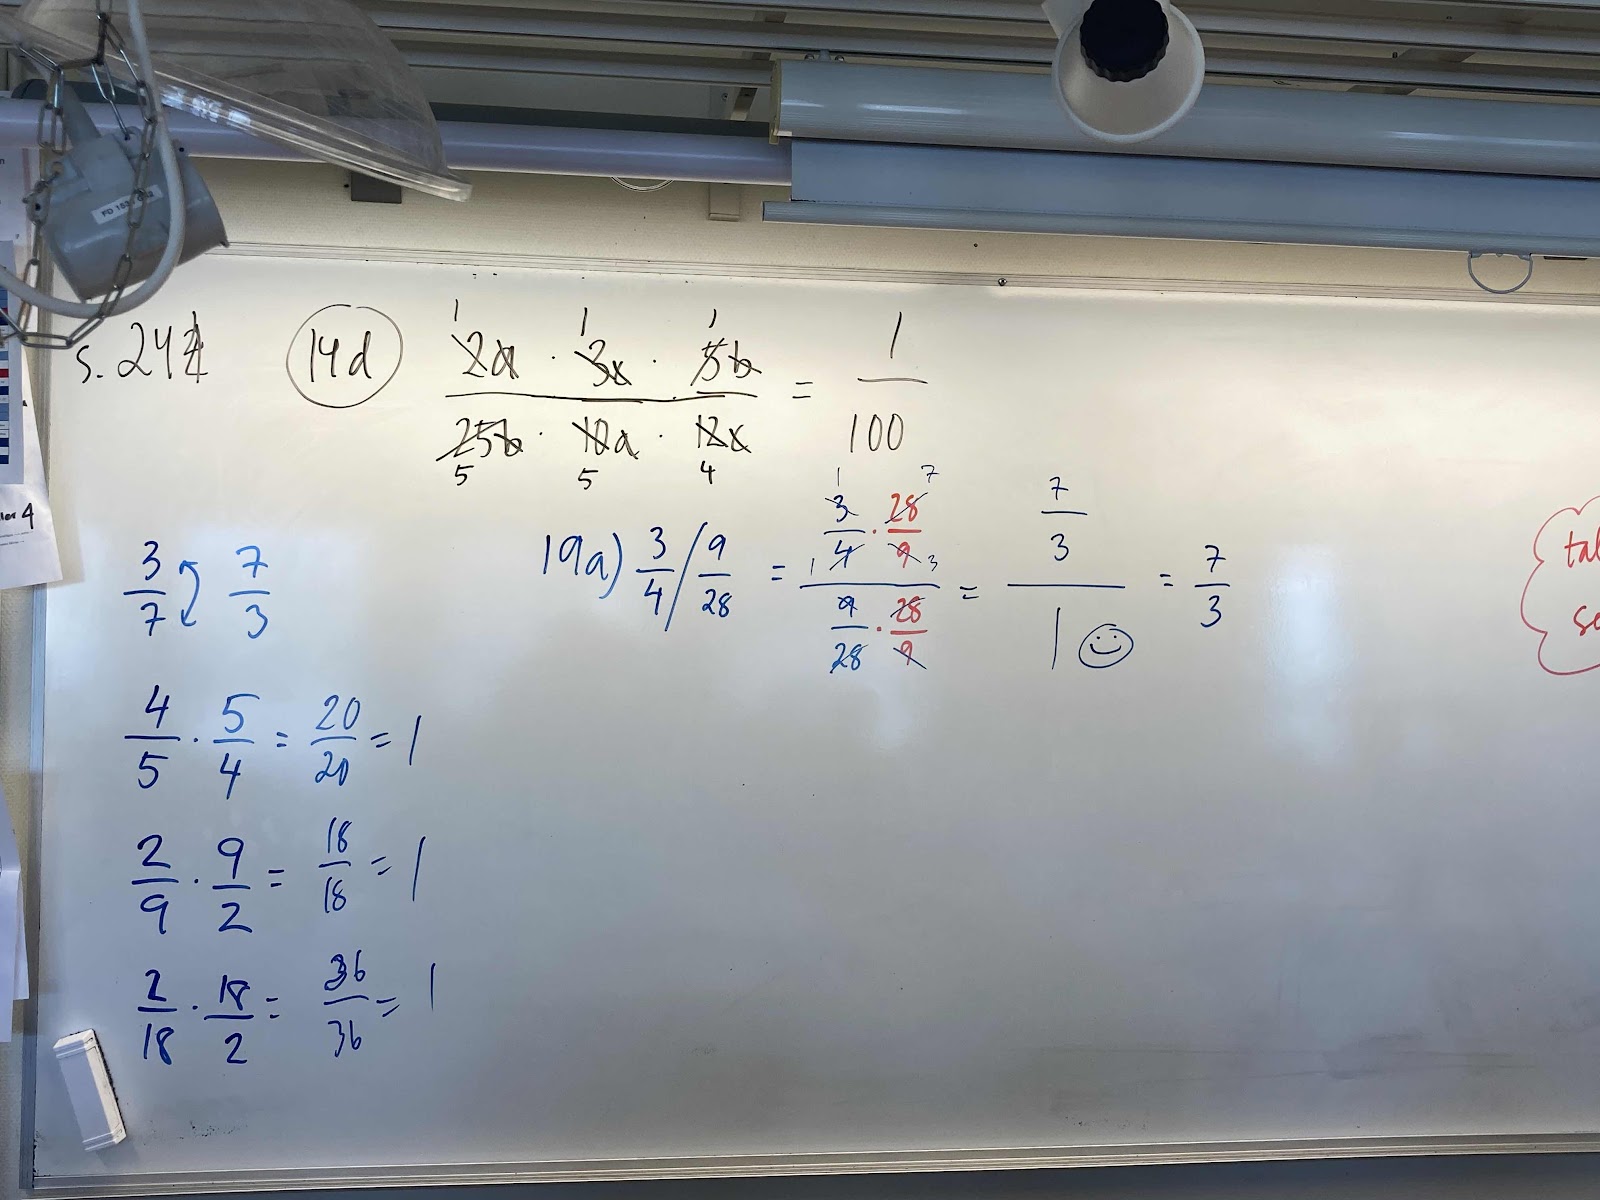 s. 242
14d
(2a · 3x · 5b) / (25b · 10a · 12x) = 1/100
1 1 1
5 5 4
3/7 7/3
19a) 3/4 / 9/28 = (3/4 · 28/9) / (9/28 · 28/9) = (7/3) / 1 = 7/3
1 7
1 3
4/5 · 5/4 = 20/20 = 1
2/9 · 9/2 = 18/18 = 1
2/18 · 18/2 = 36/36 = 1
4